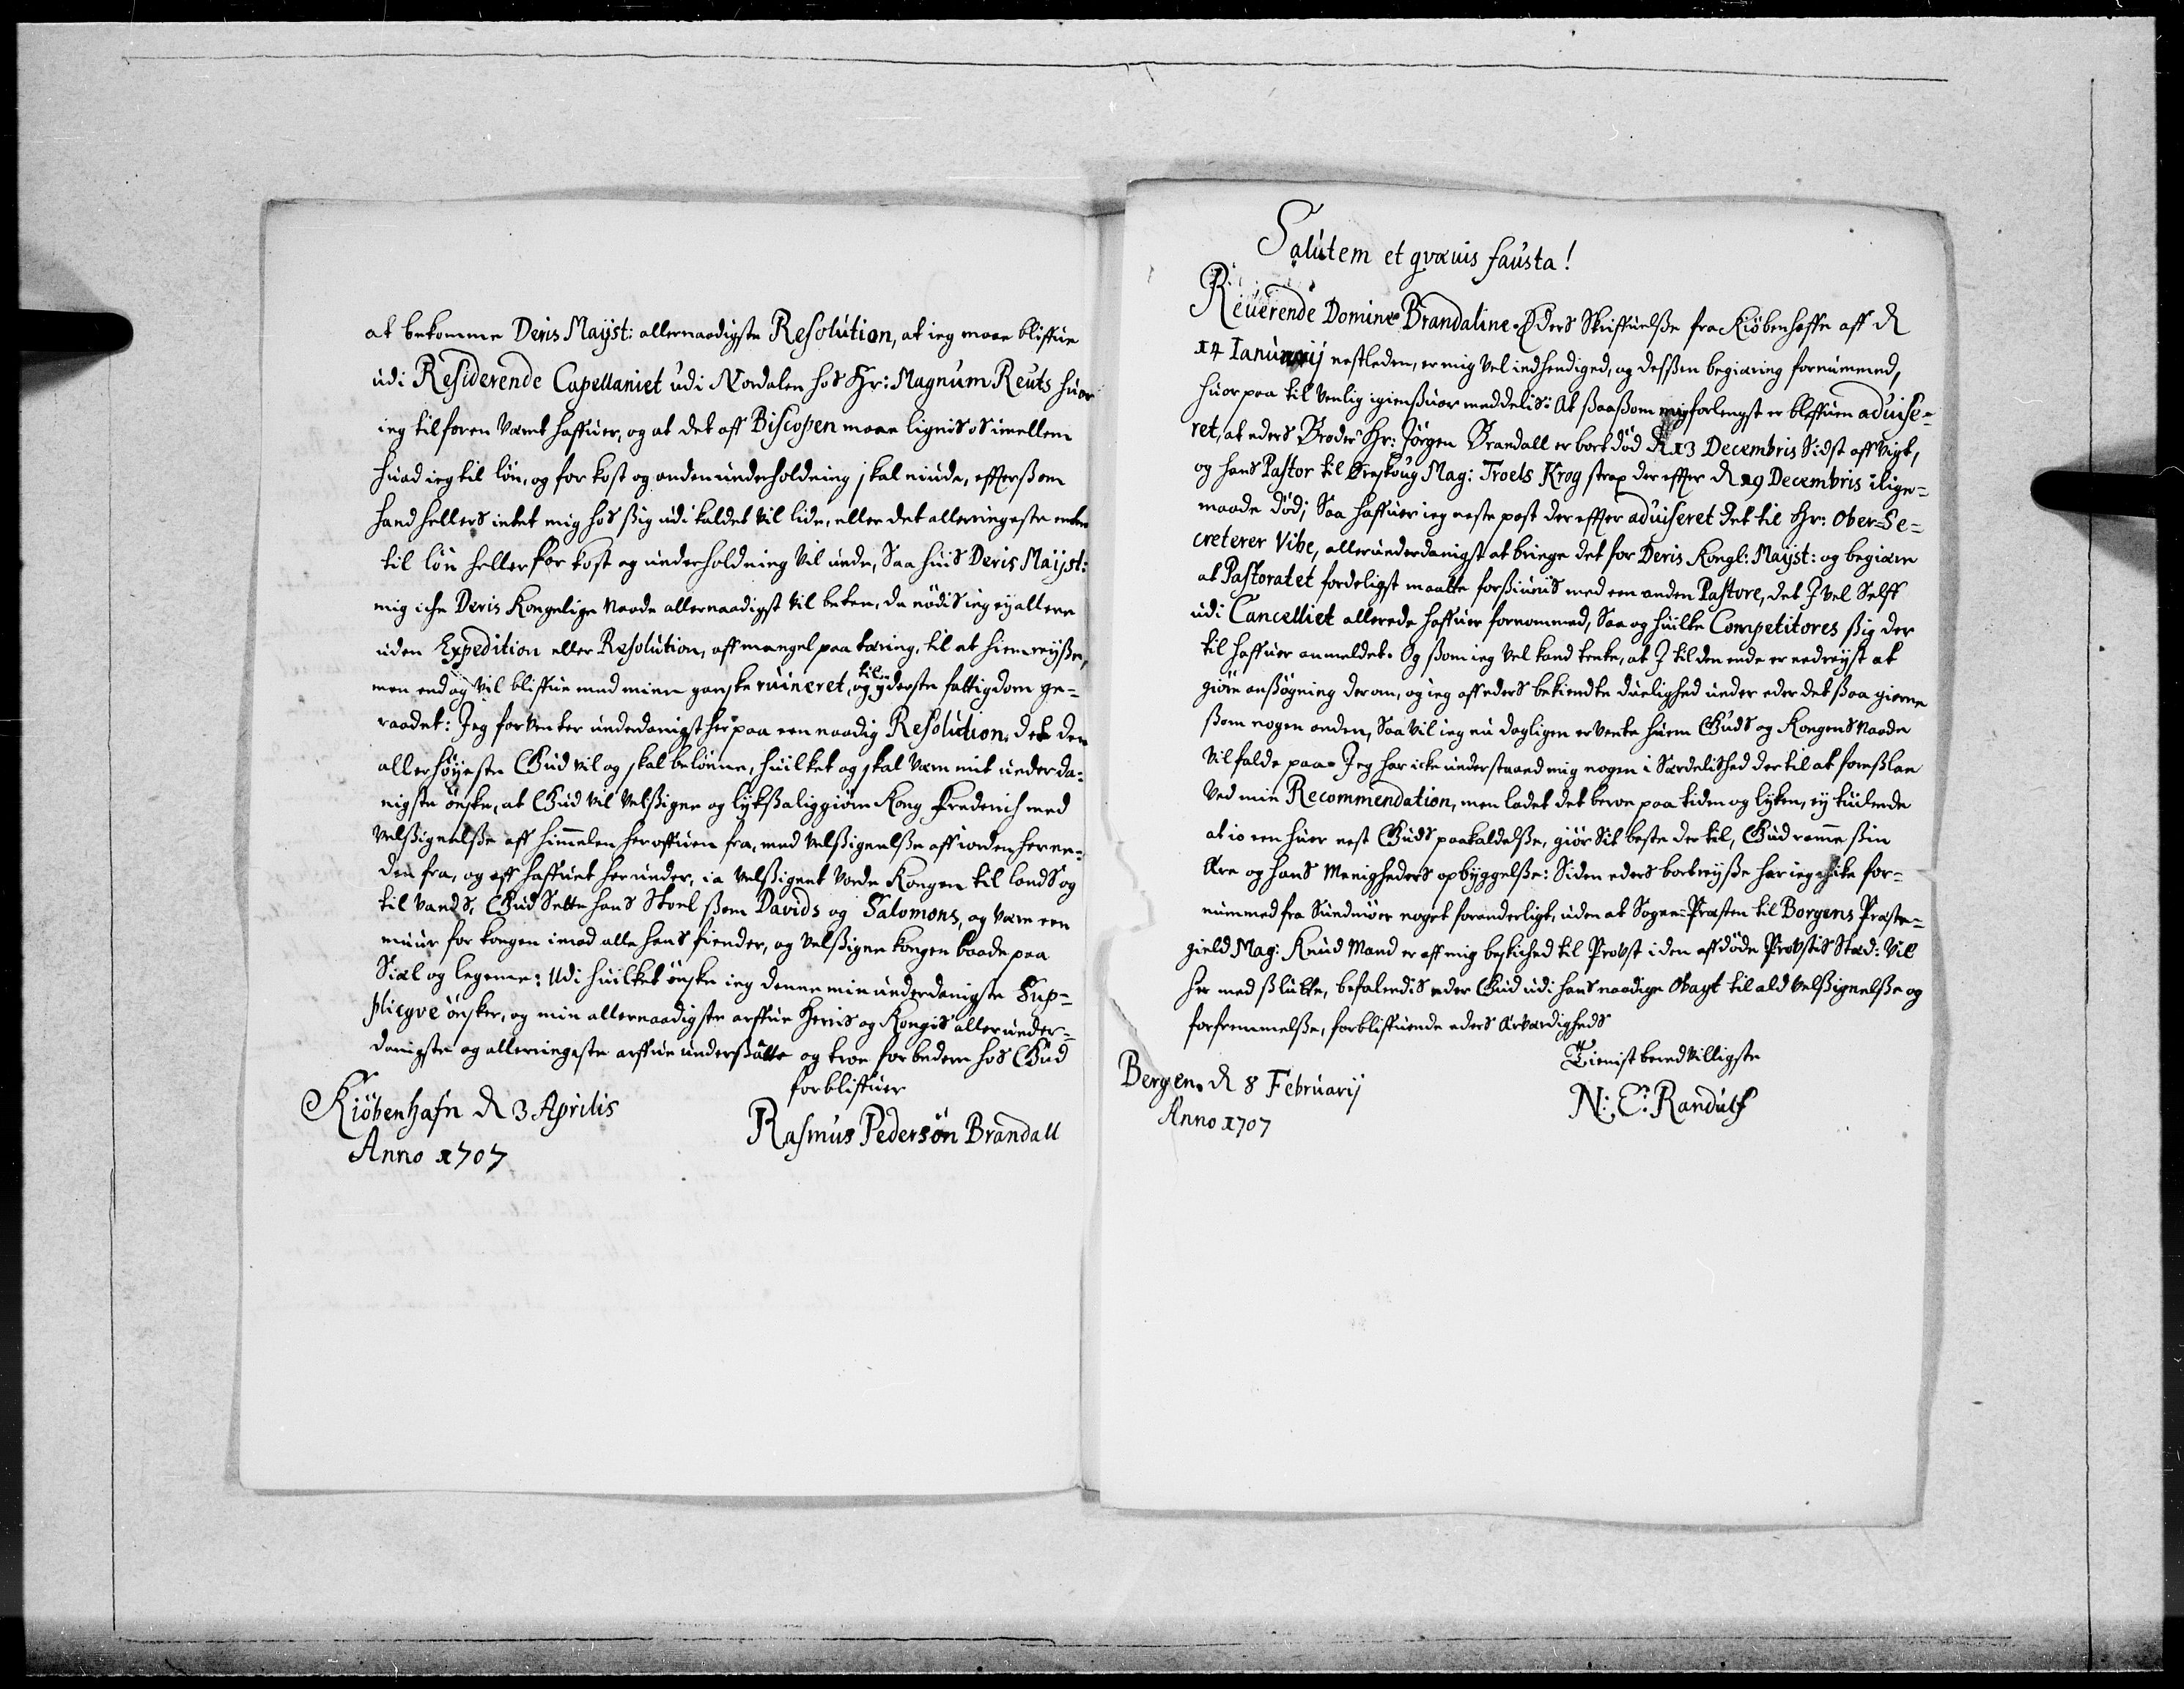 at bekomme Deris Mayst: allernaadigste Resolution, at ieg maae bliffue
udi Residerende Capellaniet udi Nordalen hos Hr: Magnum Reuts huor
ieg tilforen Værit haffuer, og at det aff Biscopen maae lignis os imellem
huad ieg til lön, og for kost og anden underholdning skal niude, effterßom
hand hellers intet mig hos ßig udi kaldet vil lide, eller det allerringeste enten
til lön heller for kost og underholdning vil unde, Saa huis Deris Mayst:
mig iche Deris Kongelige Naade allernaadigst vil betee, da nödis ieg ey allene
uden Expedition eller Resolution, aff mangel paa tæring, til at hiemreyße,
men end og vil bliffue med mine ganske ruineret, og til yderste fattigdom ge=
raadet: Jeg forventer underdanigst her paa een naadig Resolution, det den
allerhöyeste Gud vil og skal belönne, huilket og skal være mit underda=
nigste önske, at Gud vil Velßigne og lykßaliggiöre Kong Friderich med
Velßignelße aff himmelen her offuen fra, med Velßignelße aff iorden her ne=
den fra, og aff haffuet her under, ia Velßignet vorde Kongen til lands og
til vands, Gud Sette hans Stoel ßom Davids og Salomons, og være een
muur for kongen imod alle hans fiender, og velßigne kongen baade paa
Siæl og legeme: Udi huilket önske ieg denne min underdanigste Sup=
pliqve önsker, og min allernaadigste arffue Herris og Kongis allerunder=
danigste og allerringeste arffue underßâtte og troe forbedere hos Gud
forbliffuer
Kiöbenhafn d 3 Aprilis
Anno 1707
Rasmus Pedersön Brandall
Salutem et qvævis fausta!
Reverende Domine Brandaline. Eders Skriffuelße fra Kiöbenhaffn aff d
14 Januarij nestleden, er mig vel indhendiged, og deßßen begiæring fornummed,
huorpaa til venlig igienßuar meddelis: At ßaaßom mig forlengst er bleffuen advise=
ret, at eders Broder Hr: Jörgen Brandall er bort död d 13 Decembris Sidst affvigt,
og hans Pastor til Ørskoug Mag: Troels Krog strax der effter d 29 Decembris ilige=
maade död; Saa haffuer ieg neste post der effter adviseret det til Hr: Ober=Se=
creterer Vibe, allerunderdanigst at bringe det for Deris Kongl: Mayst: og begiære
at Pastoratet fordeligst maatte forßiunis med een anden Pastore, det I vel Selff
udi Cancelliet allerede haffuer fornommed, Saa og huilke Competitores ßig der
til haffuer anmeldet. Og ßom ieg vel kand tenke, at I til den ende er nedreyst at
giöre anßögning derom, og ieg aff eders bekiendte duelighed under eder det ßaa gierne
ßom nogen anden, Saa vil ieg nu dagligen ervente huem Guds og Kongens Naade
vil falde paa. Jeg har icke understaaed mig nogen i Særdelished der til at foreßlae
ved min Recommendation, men ladet det beroe paa tiden og lyken, ey tuilende
at io een huer nest Guds paakaldelße, giör Sit beste der til, Gud ramme ßin
Ære og hans Menigheders opbyggelße: Siden eders bortreyße har ieg icke for=
nummed fra Sundmöer noget foranderligt, uden at Sogne=Præsten til Borgens Præste=
gield Mag: Knud Mand er aff mig beskiched til Provst i den affdöde Provstis Stæd: Vil
her med ßlutte, befalendis eder Gud udi hans naadige Vagt til ald Velßignelße og
forfremmelße, forbliffuende eders Ærværdigheds
Tienist beredvilligste
N: E: Randulf
Bergen, d 8 Februarij
Anno 1707